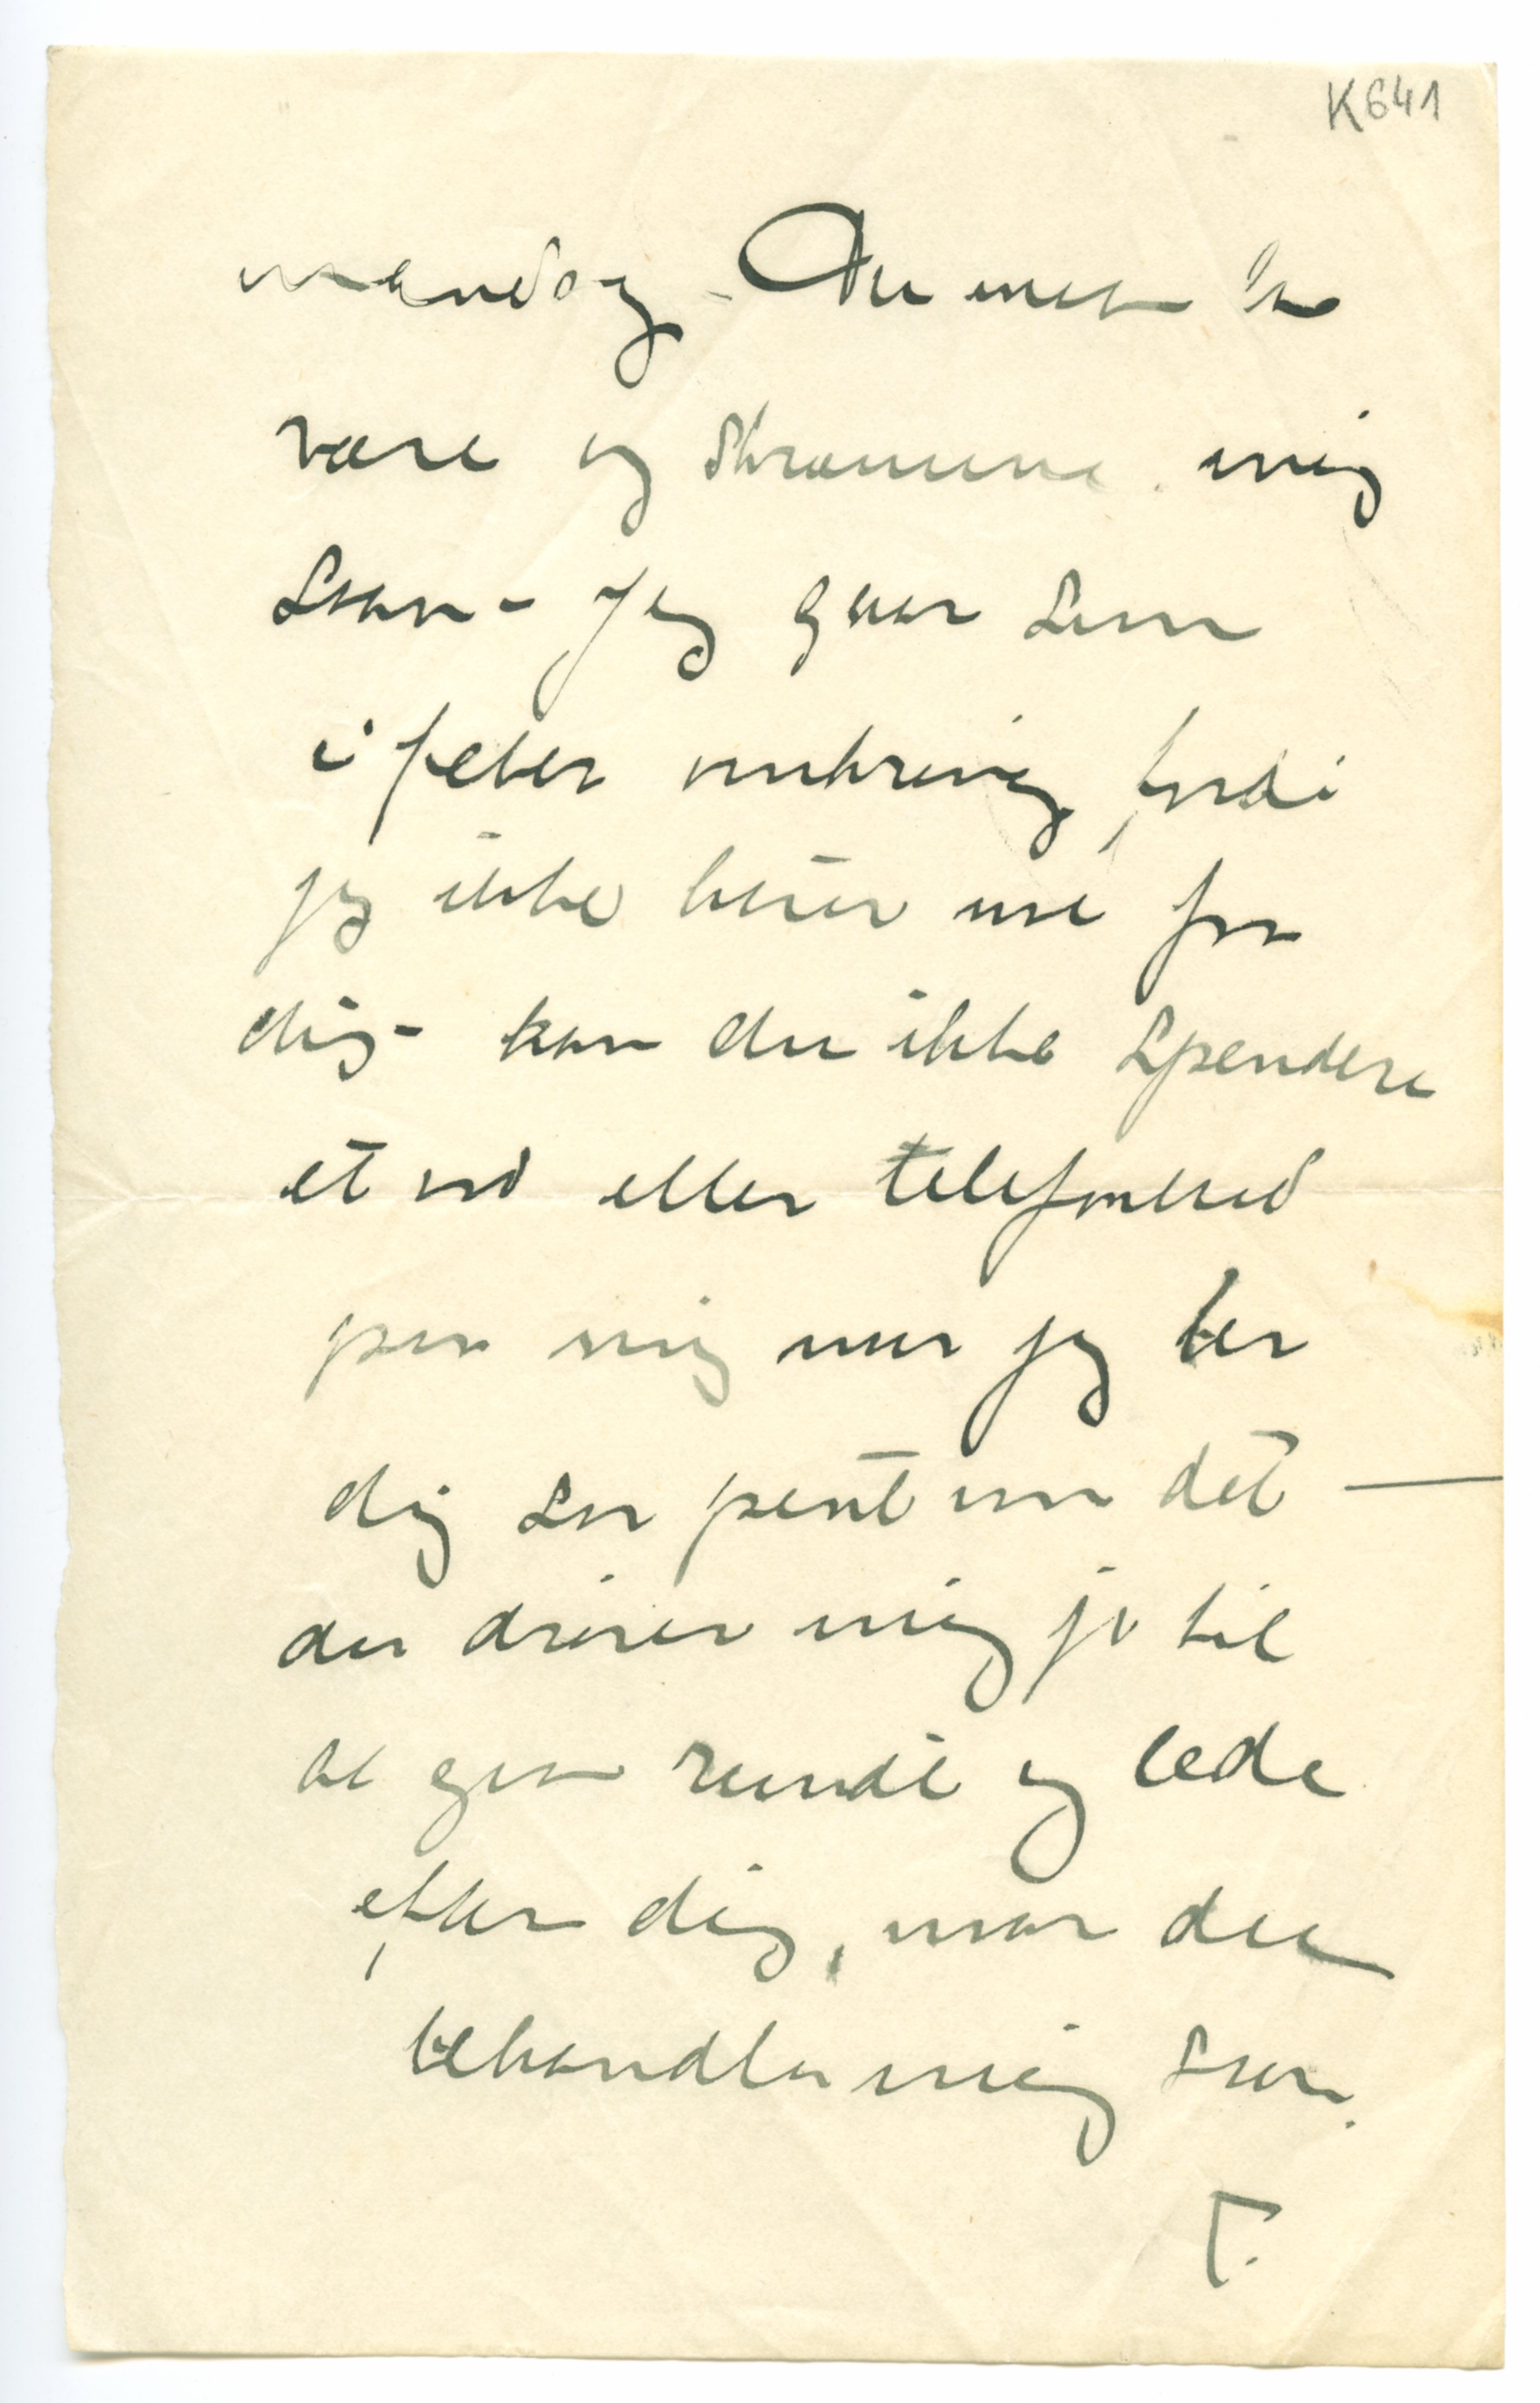 K641
mandag - Du maa la
være og skræmme mig
saan - Jeg gaar som
i feber omkring fordi
jeg ikke hører noe fra
dig - kan du ikke spendere
et ord eller telefonbud
paa mig naar jeg ber
dig saa pent om det —
du driver mig jo til
at gaa rundt og lede
efter dig, naar du
behandler mig saan.
T.